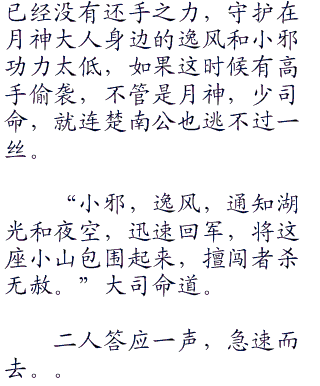 已经没有还手之力，守护在
月神大人身边的逸风和小邪
功力太低，如果这时候有高
手偷袭，不管是月神，少司
命，就连楚南公也逃不过一
丝。
“小邪，逸风，通知湖
光和夜空，迅速回军，将这
座小山包围起来，擅闯者杀
无赦。”大司命道。
二人答应一声，急速而
去。。